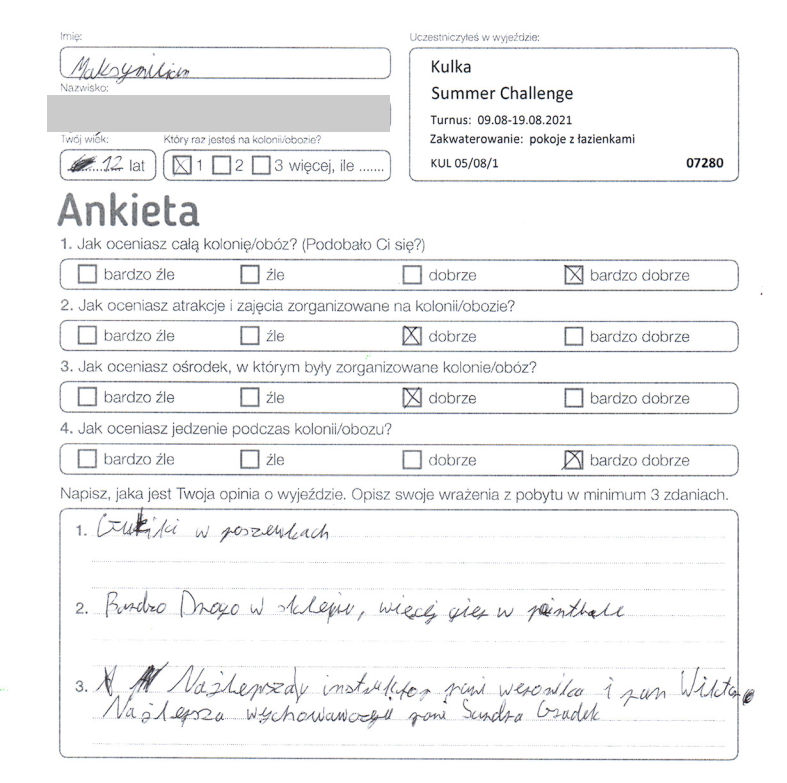 Imię:
Maksymilian
Nazwisko:
Twój wiek:
12 lat
Który raz jesteś na kolonii/obozie?
1 2 3 więcej, ile .......
Uczestniczyłeś w wyjeździe:
Kulka
Summer Challenge
Turnus: 09.08-19.08.2021
Zakwaterowanie: pokoje z łazienkami
KUL 05/08/1 07280
Ankieta
1. Jak oceniasz całą kolonię/obóz? (Podobało Ci się?)
bardzo źle źle dobrze bardzo dobrze
2. Jak oceniasz atrakcje i zajęcia zorganizowane na kolonii/obozie?
bardzo źle źle dobrze bardzo dobrze
3. Jak oceniasz ośrodek, w którym były zorganizowane kolonie/obóz?
bardzo źle źle dobrze bardzo dobrze
4. Jak oceniasz jedzenie podczas kolonii/obozu?
bardzo źle źle dobrze bardzo dobrze
Napisz, jaka jest Twoja opinia o wyjeździe. Opisz swoje wrażenia z pobytu w minimum 3 zdaniach.
1. Guziki w poszewkach
2. Bardzo Drogo w sklepie, więcej gier w paintball
3. Najlepszy instruktor pani weronika i pan Wiktor
Najlepsza wychowawczyni pani Sandra